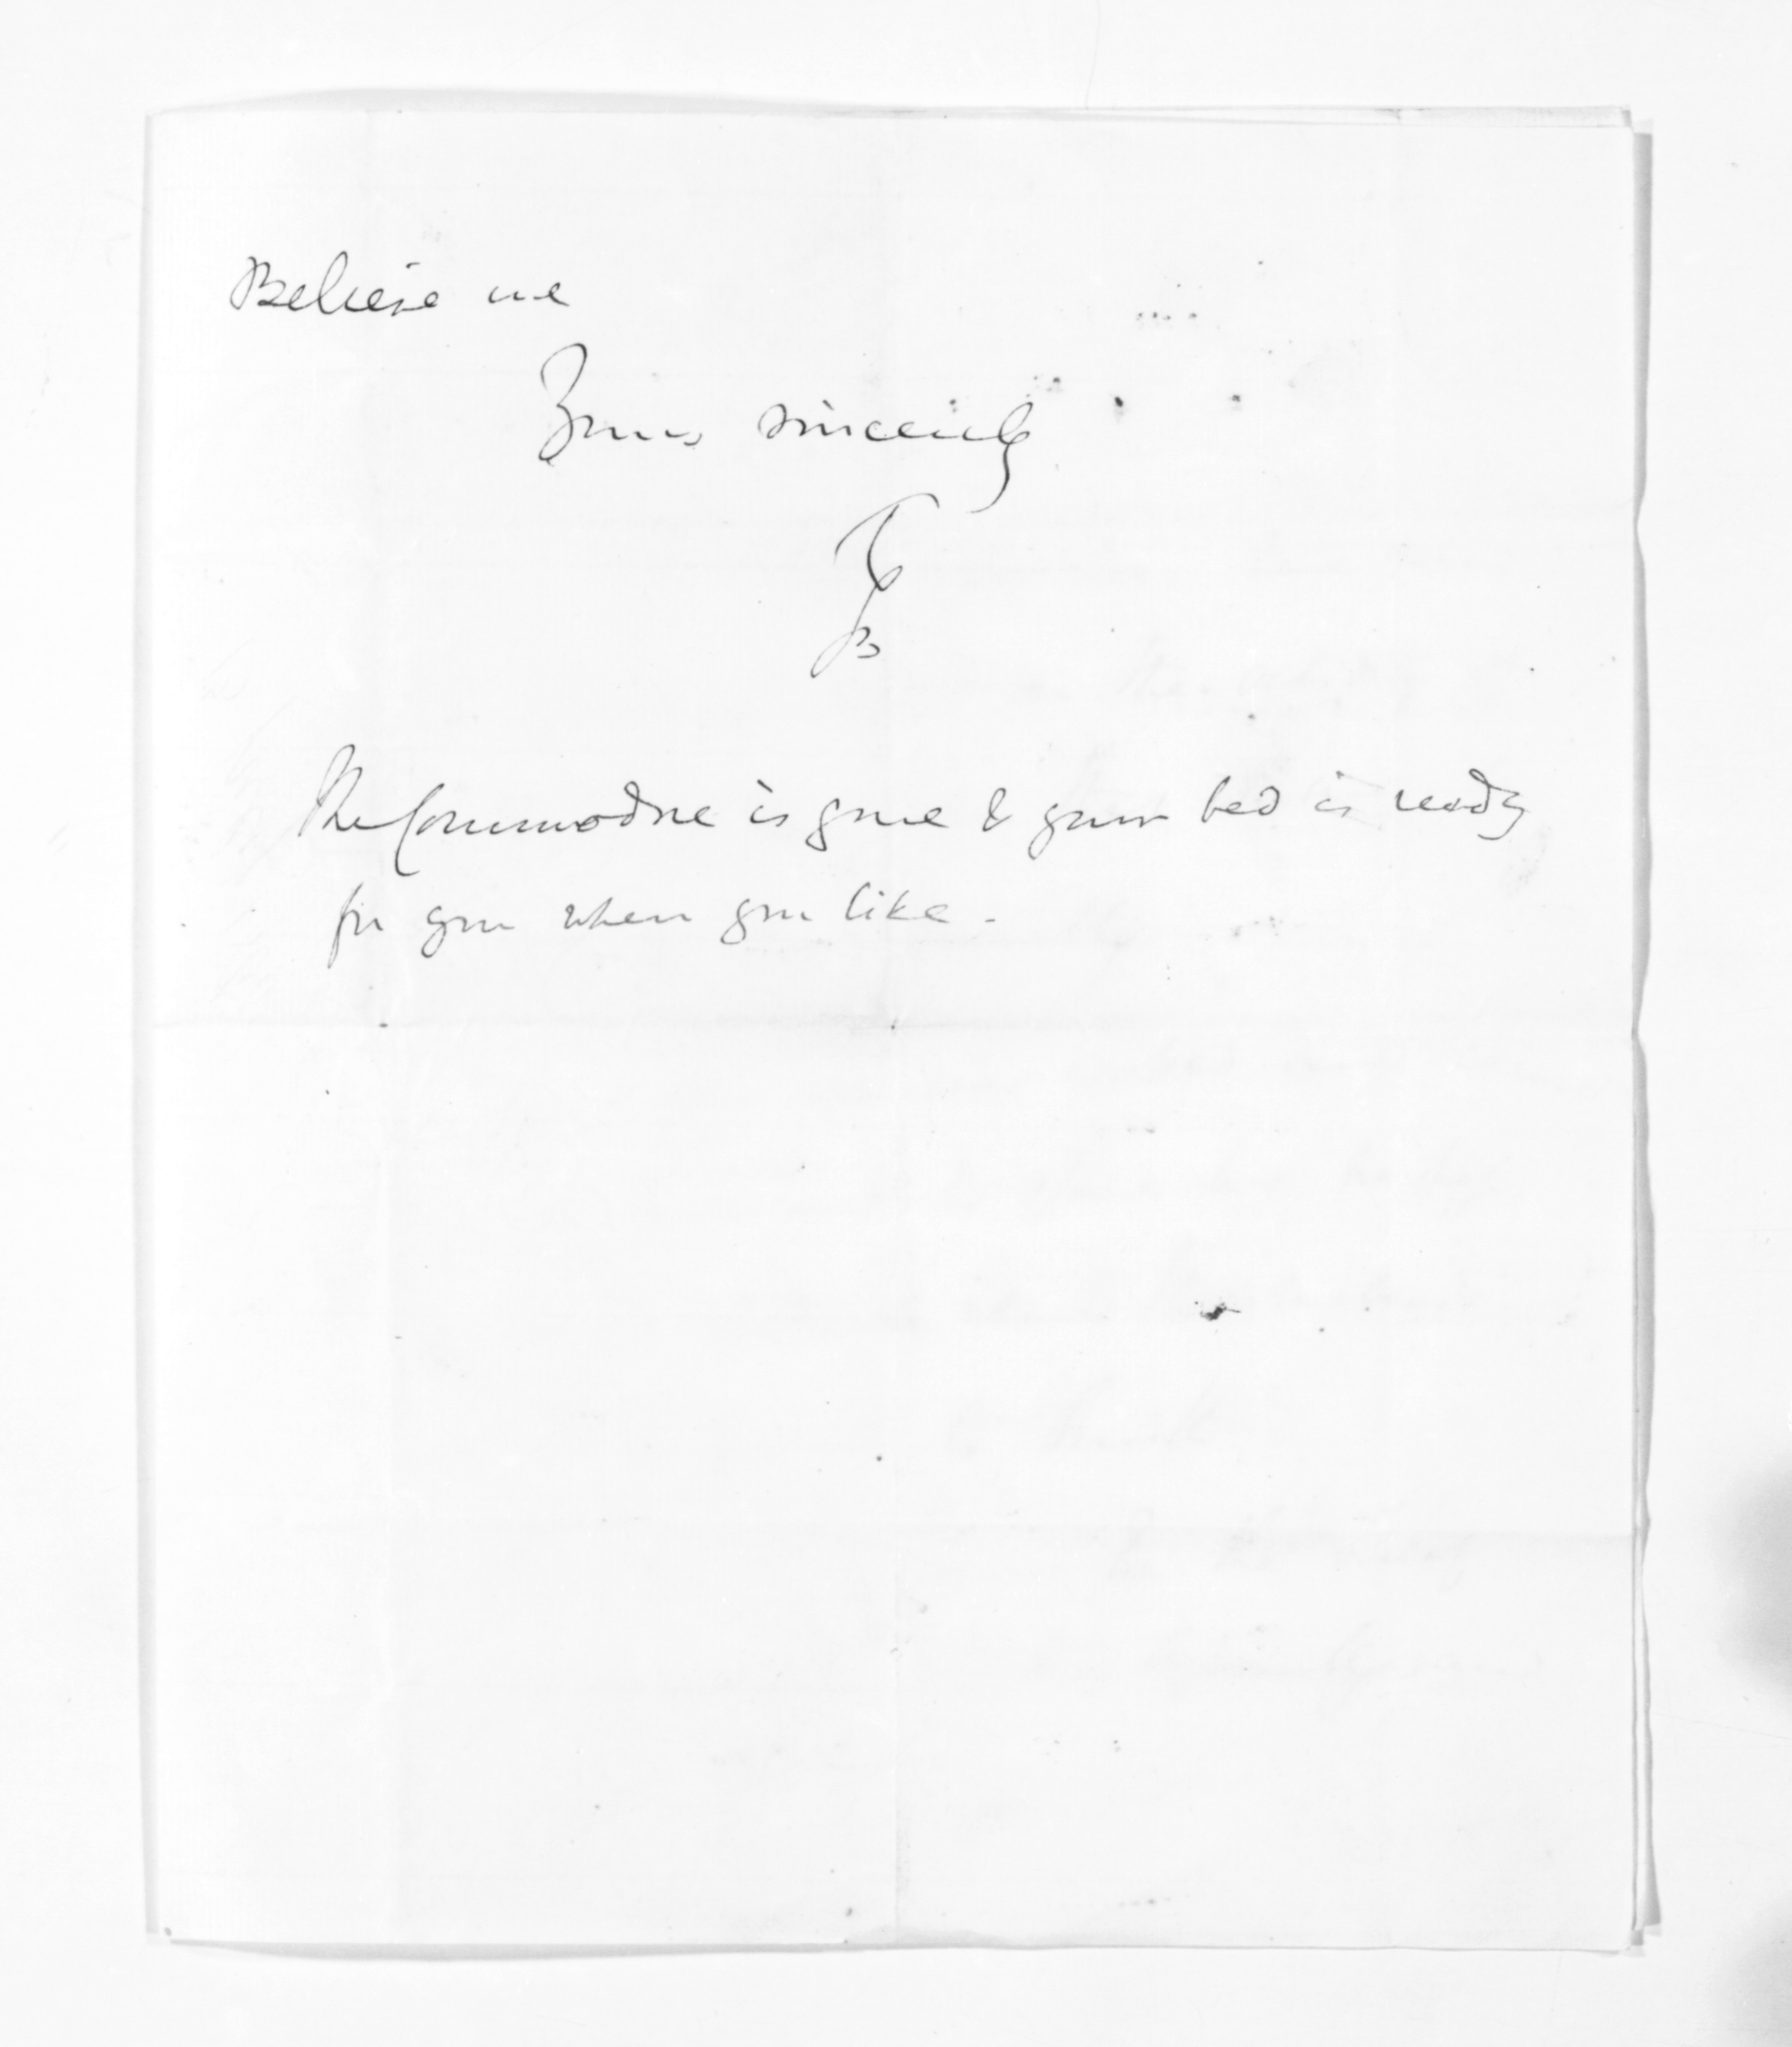 Believe me
Yours sincerely
TGB
The Commodore is gone & your bed is ready
for you when you like -